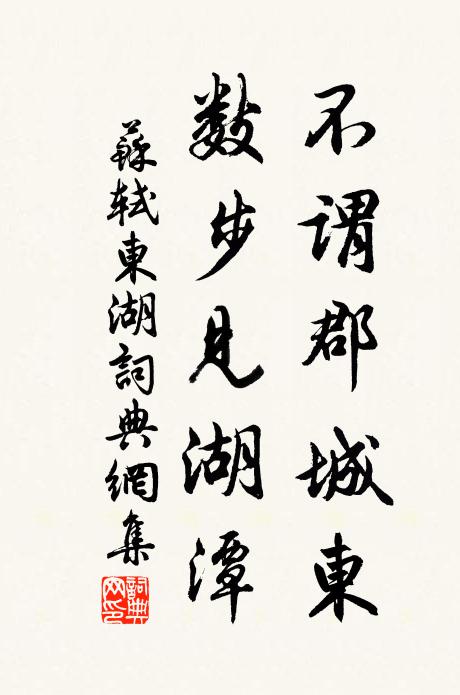 不謂郡城東
數步見湖潭
蘇軾東湖詞典網集
詞典網印